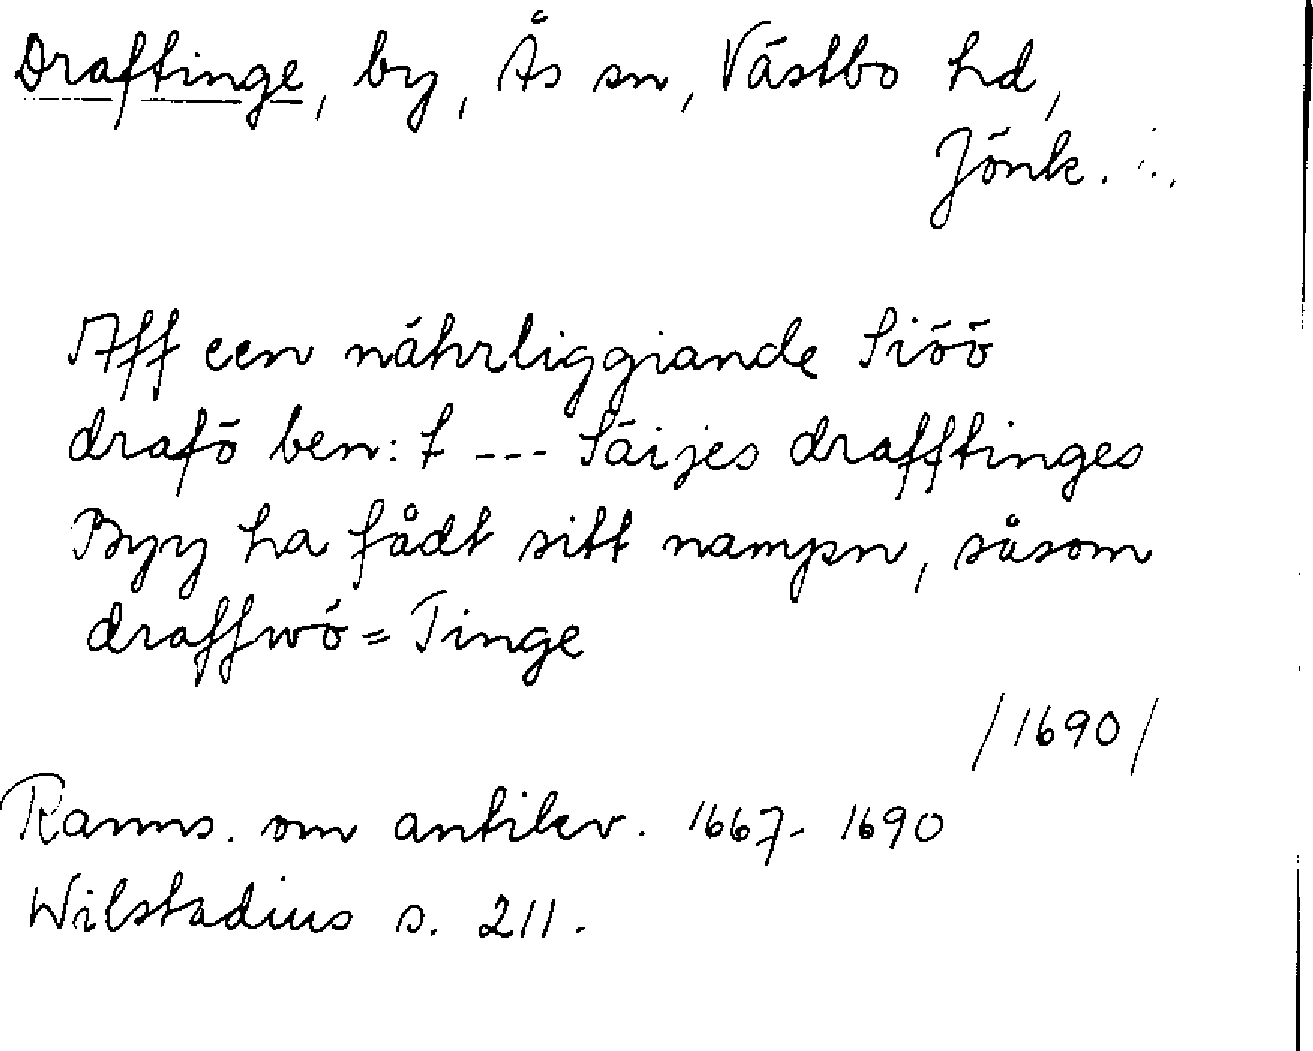 Draftinge, by, Ås sn, Västbo hd,
Jönk.
Aff een nährliggiande Siöö
drafö ben: t --- Säijes drafftinges
Byy ha fådt sitt nampn, såsom
draffwö=Tinge
/1690/
Ranns. om antikv. 1667-1690
Wilstadius s. 211.